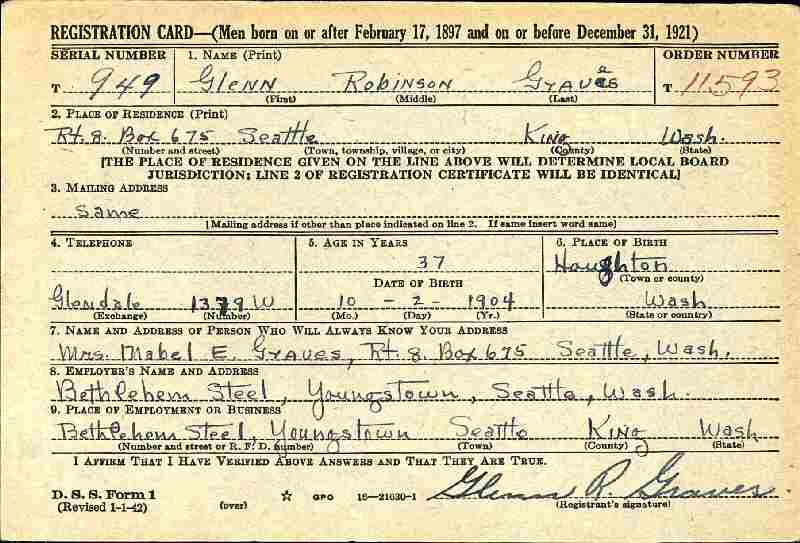 REGISTRATION CARD—(Men born on or after February 17, 1897 and on or before December 31, 1921)
SERIAL NUMBER 1. NAME (Print) ORDER NUMBER
T 949 GLENN ROBINSON GRAVES T 11593
(First) (Middle) (Last)
2. PLACE OF RESIDENCE (Print)
Rt. 8. Box 675 Seattle KING Wash.
(Number and street) (Town, township, village, or city) (County) (State)
[THE PLACE OF RESIDENCE GIVEN ON THE LINE ABOVE WILL DETERMINE LOCAL BOARD
JURISDICTION; LINE 2 OF REGISTRATION CERTIFICATE WILL BE IDENTICAL]
3. MAILING ADDRESS
Same
[Mailing address if other than place indicated on line 2. If same insert word same]
4. TELEPHONE 5. AGE IN YEARS 6. PLACE OF BIRTH
37 Houghton
DATE OF BIRTH (Town or county)
Glendale 1379 W 10 - 2 - 1904 Wash
(Exchange) (Number) (Mo.) (Day) (Yr.) (State or country)
7. NAME AND ADDRESS OF PERSON WHO WILL ALWAYS KNOW YOUR ADDRESS
Mrs. Mabel E. Graves, Rt. 8. Box 675 Seattle, Wash.
8. EMPLOYER'S NAME AND ADDRESS
Bethlehem Steel, Youngstown, Seattle, Wash.
9. PLACE OF EMPLOYMENT OR BUSINESS
Bethlehem Steel, Youngstown Seattle KING Wash
(Number and street or R. F. D. number) (Town) (County) (State)
I AFFIRM THAT I HAVE VERIFIED ABOVE ANSWERS AND THAT THEY ARE TRUE.
D. S. S. Form 1 ☆ GPO 16—21630-1 Glenn R. Graves
(Revised 1-1-42) (over) (Registrant's signature)